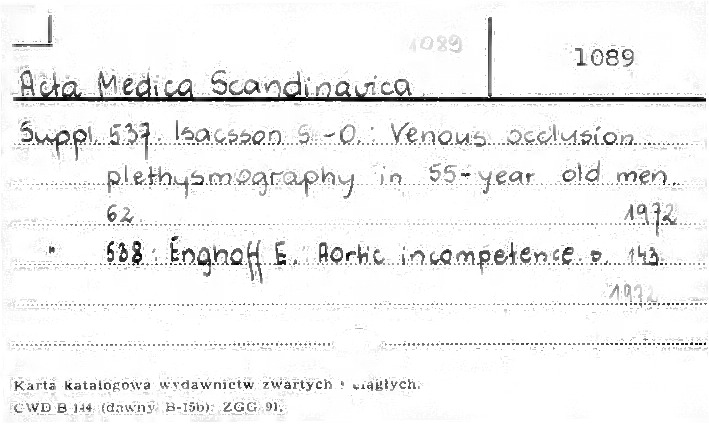 1089
1089
Acta Medica Scandinavica
Suppl. 537. Isacsson S.-O.: Venous occlusion
plethysmography in 55-year old men.
62. 1972
" 538: Enghoff E.: Aortic incompetence. p. 143
1972
Karta katalogowa wydawnictw zwartych i ciągłych.
CWD B 144 (dawny B-15b); ZGG 91,